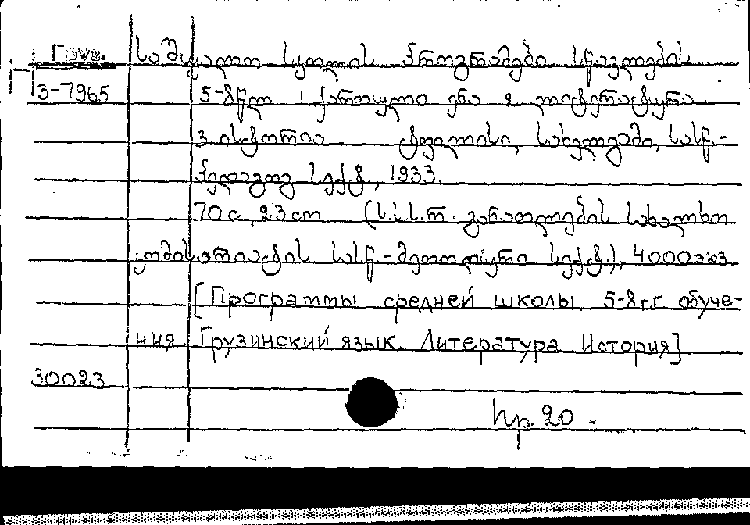 Груз. საშუალო სკოლის პროგრამები სწავლების
3-7965 5-8 წლ. 1. ქართული ენა 2. ლიტერატურა
3. ისტორია ტფილისი, სახელგამი, სასწ.-
პედაგოგ. სექტ., 1933.
70 с., 23 cm (ს.ს.ს.რ. განათლების სახალხო
კომისარიატის სასწ.-მეთოდიური სექტ.), 4000 ეკз.
[Программы средней школы. 5-8 г.г. обуче-
ния Грузинский язык. Литература История]
30023
20